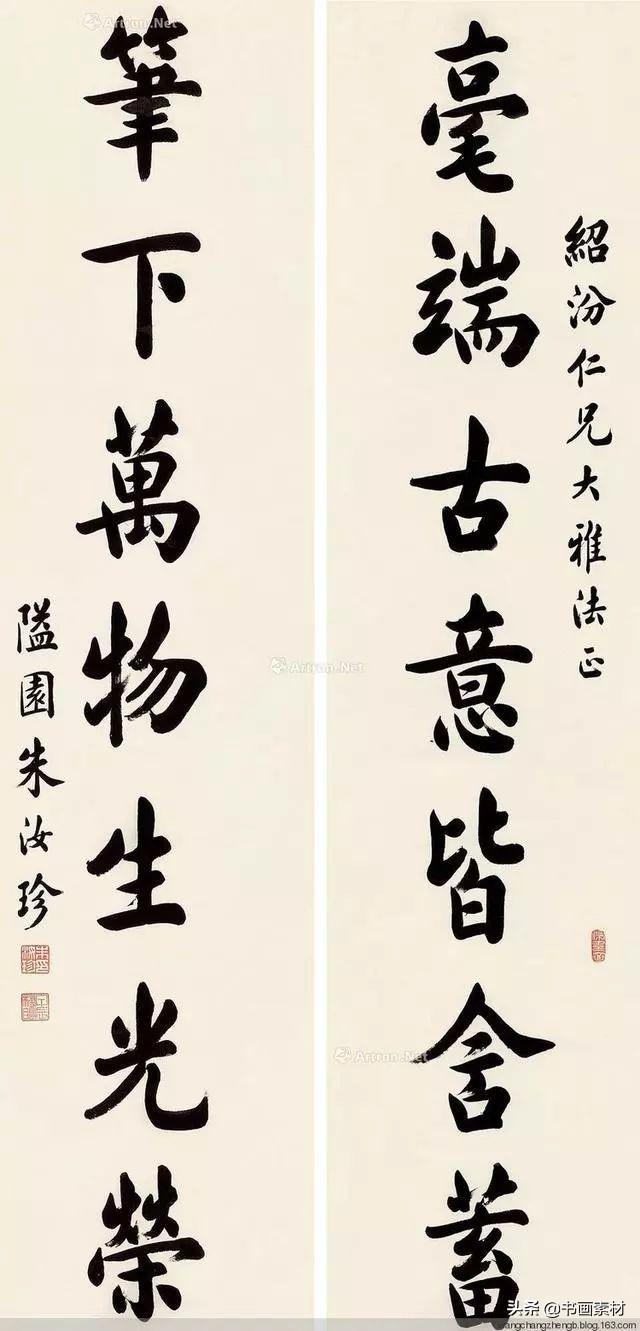 紹汾仁兄大雅法正
毫端古意皆含蓄
筆下萬物生光榮
隘園朱汝珍
Artron.Net
Artron.Net
Artron.Net
头条 @书画素材
wangchangzhengb.blog.163.com